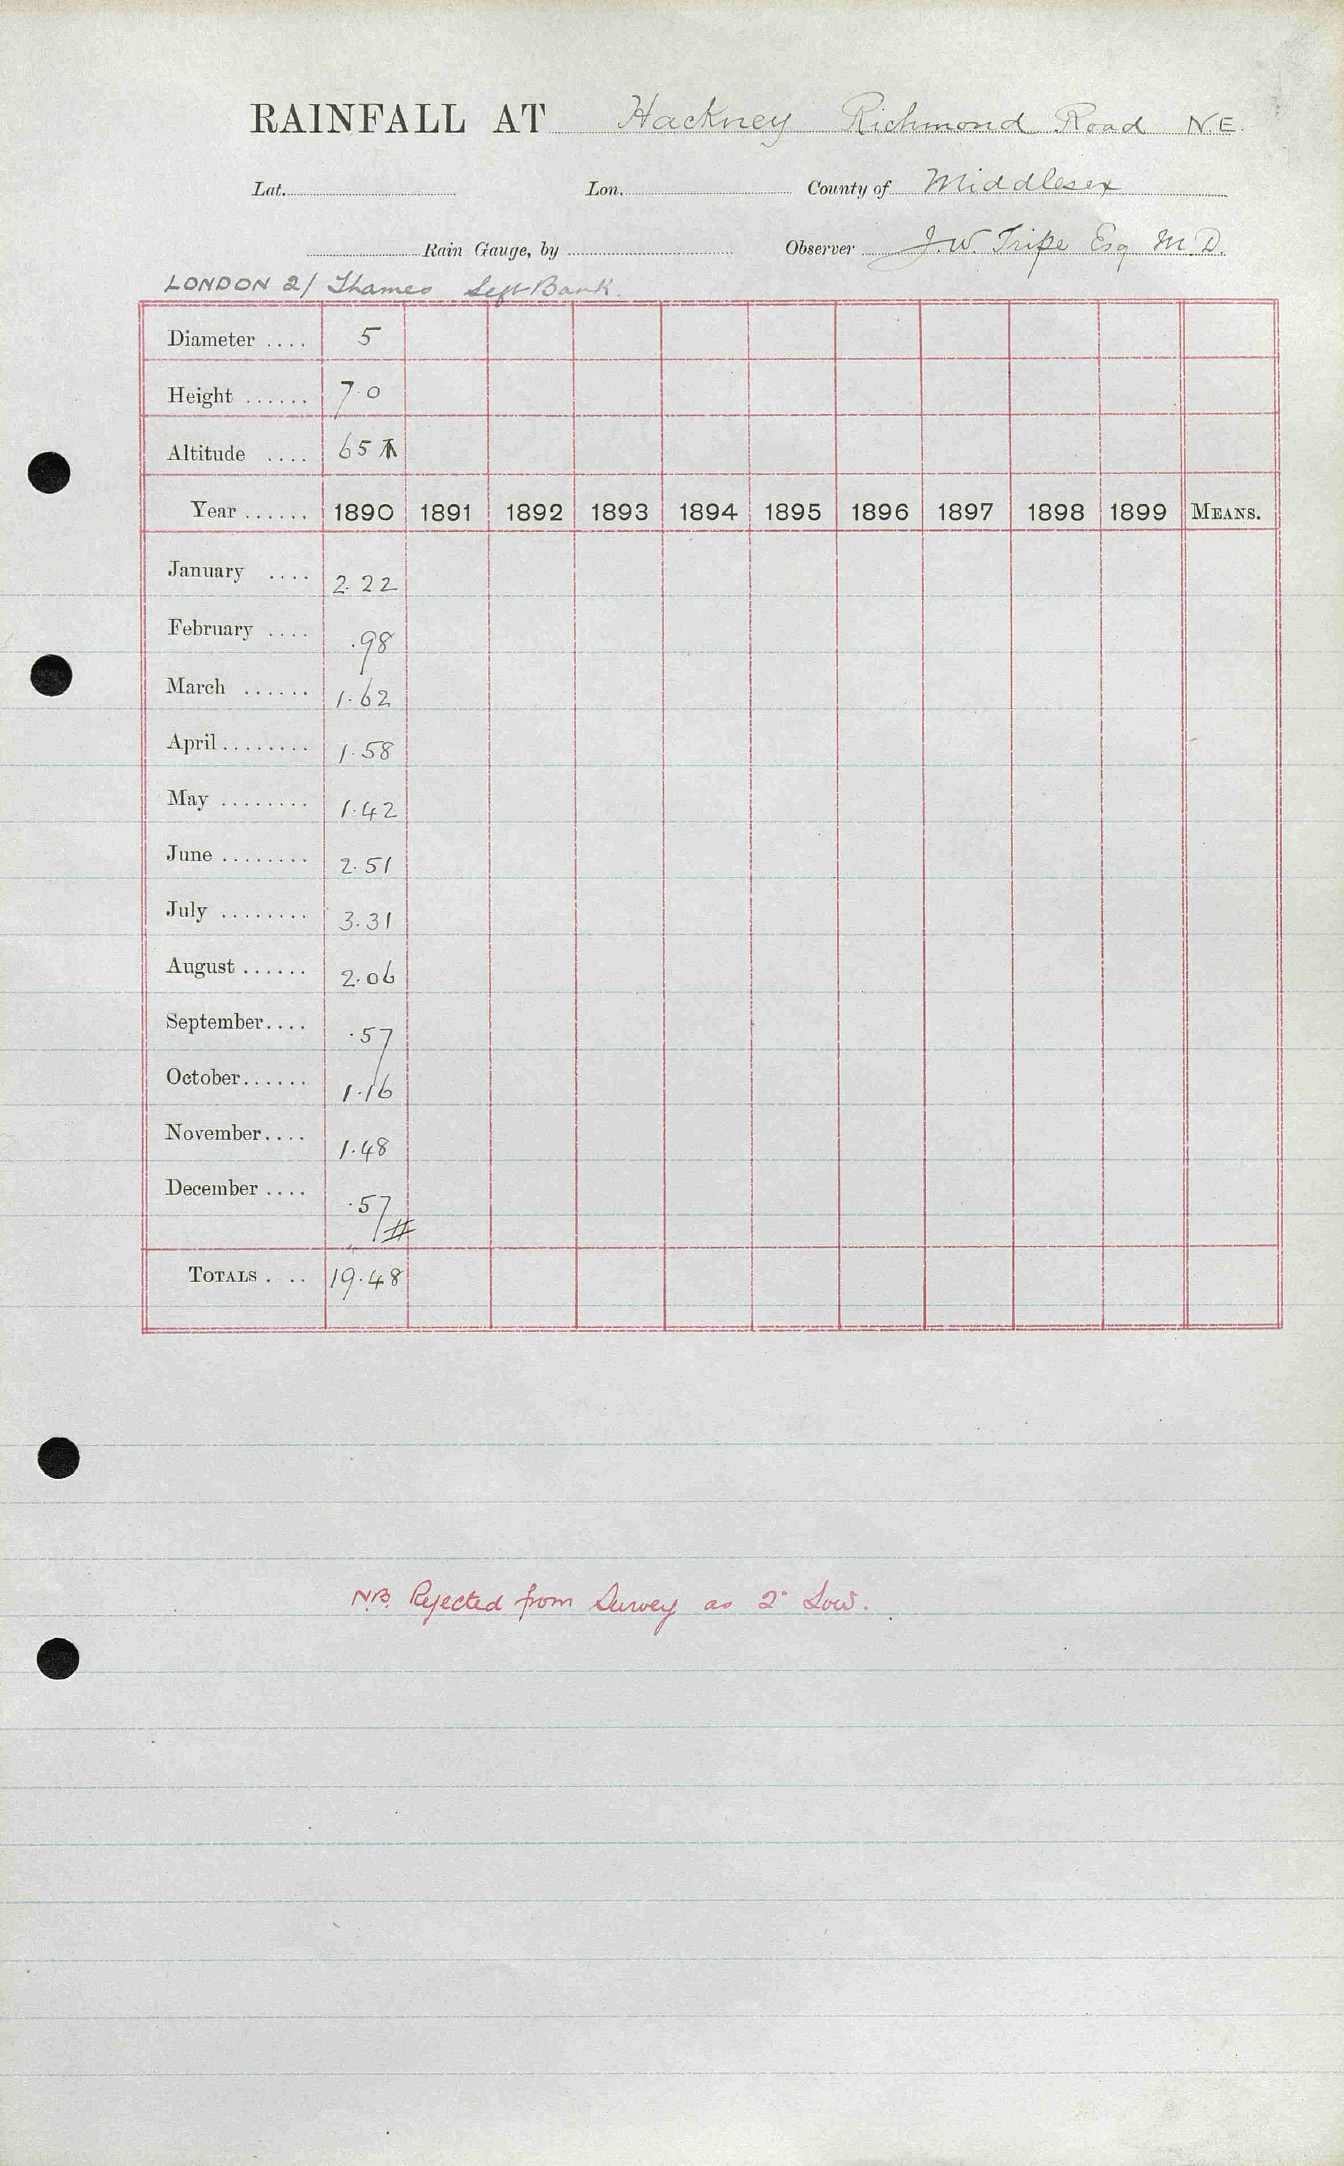 RAINFALL AT Hackney Richmond Road N.E.
Lat. Lon. County of Middlesex
Rain Gauge, by Observer J.W. Tripe Esq M.D.
LONDON 2/ Thames Left Bank.
Diameter .... 5
Height ...... 7.0
Altitude .... 65
Year ...... 1890 1891 1892 1893 1894 1895 1896 1897 1898 1899 MEANS.
January .... 2.22
February .... .98
March ...... 1.62
April ........ 1.58
May ........ 1.42
June ........ 2.51
July ........ 3.31
August ...... 2.06
September.... .57
October...... 1.16
November.... 1.48
December .... .57
TOTALS . .. 19.48
N.B. Rejected from Survey as 2" Low.